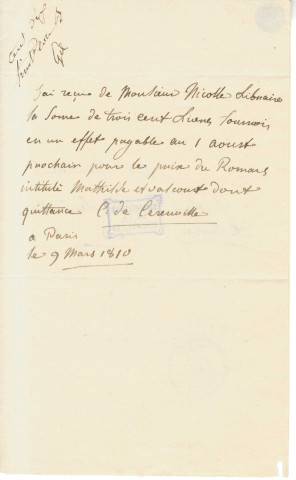 J'ai reçu de Monsieur Nicolle Libraire
la Some de trois cent Livres Tournois
en un effet payable au 1 aoust
prochain pour le prix du Roman
intitulé Mathilde et valcourt dont
quittance C. de Cerenville
a Paris
le 9 Mars 1810